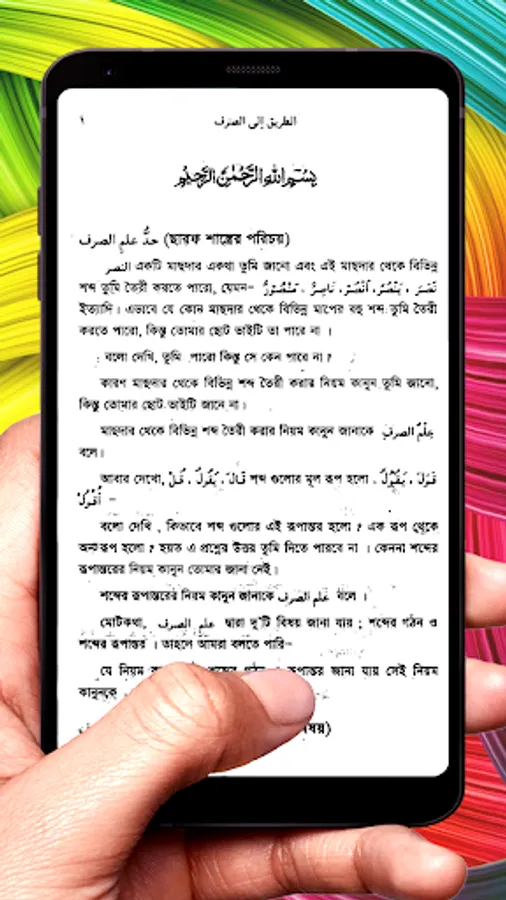 ١ الطريق إلى الصرف
بسم الله الرحمن الرحيم
حدُّ علم الصرف (ছারফ শাস্ত্রের পরিচয়)
النصر একটি মাছদার একথা তুমি জানো এবং এই মাছদার থেকে বিভিন্ন
শব্দ তুমি তৈরী করতে পারো, যেমন- نَصَرَ ، يَنْصُرُ، اُنْصُرْ، نَاصِرٌ ، مَنْصُوْرٌ
ইত্যাদি। এভাবে যে কোন মাছদার থেকে বিভিন্ন মাপের বহু শব্দ তুমি তৈরী
করতে পারো, কিন্তু তোমার ছোট ভাইটি তা পারে না ।
বলো দেখি, তুমি পারো কিন্তু সে কেন পারে না ?
কারণ মাছদার থেকে বিভিন্ন শব্দ তৈরী করার নিয়ম কানুন তুমি জানো,
কিন্তু তোমার ছোট ভাইটি জানে না।
মাছদার থেকে বিভিন্ন শব্দ তৈরী করার নিয়ম কানুন জানাকে عِلْمُ الصرف
বলে।
আবার দেখো, قَالَ، يَقُوْلُ، قُلْ শব্দ গুলোর মূল রূপ হলো قَوَلَ ، يَقْوُلُ ،
اُقْوُلْ -
বলো দেখি , কিভাবে শব্দ গুলোর এই রূপান্তর হলো ? এক রূপ থেকে
অন্য রূপ হলো ? হয়ত এ প্রশ্নের উত্তর তুমি দিতে পারবে না । কেননা শব্দের
রূপান্তরের নিয়ম কানুন তোমার জানা নেই।
শব্দের রূপান্তরের নিয়ম কানুন জানাকে علم الصرف বলে ।
মোটকথা, علم الصرف দ্বারা দু'টি বিষয় জানা যায় ; শব্দের গঠন ও
শব্দের রূপান্তর । তাহলে আমরা বলতে পারি-
যে নিয়ম শব্দের গঠন রূপান্তর জানা যায় সেই নিয়ম
কানুনকে